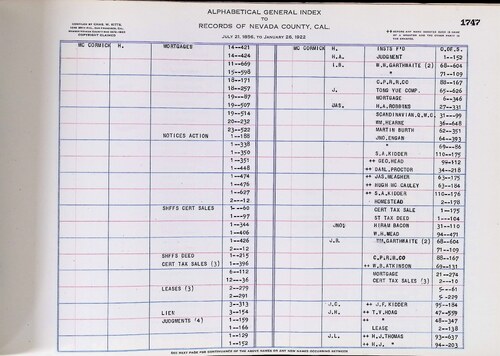 ALPHABETICAL GENERAL INDEX
TO
RECORDS OF NEVADA COUNTY, CAL.
JULY 21, 1856, TO JANUARY 28, 1922
1747
COPYRIGHT CLAIMED
MC CORMICK H. MORTGAGES 14--421 MC CORMICK H. INSTS F'D O.OF S.
14--424 H.A. JUDGMENT 1--152
11--669 I.B. W.H.GARTHWAITE (2) 68--604
15--598 " 71--109
18--171 C.P.R.R.CO 88--167
18--257 J. TONG YUE COMP. 65--626
19---87 MORTGAGE 6--346
19--507 JAS. H.A.ROBBINS 27--331
19--514 SCANDINAVIAN.Q.M.C. 31---99
20--232 WM.HEARNE 36--648
23--522 MARTIN BURTH 62--351
NOTICES ACTION 1--188 JNO.ENGAN 64--393
1--338 " 69---86
1--350 S.A.KIDDER 110--175
1--351 ++ GEO.HEAD 94--112
1--448 ++ DARL.PROCTOR 34--218
1--474 ++ JAS.MEAGHER 63--175
1--476 ++ HUGH MC CAULEY 63--184
1--627 ++ S.A.KIDDER 110--176
2---12 HOMESTEAD 2--178
SHFFS CERT SALES 1---60 CERT TAX SALE 1--175
1---97 ST TAX DEED 1--104
1--344 JNO. HIRAM BACON 31--110
1--406 W.H.MEAD 94--471
1--426 J.B. WM.GARTHWAITE (2) 68--604
2---12 71--109
SHFFS DEED 1--215 C.P.R.R.CO 88--167
CERT TAX SALES (3) 1--396 ++ W.D.ATKINSON 69--131
6--112 MORTGAGE 21--274
12---36 CERT TAX SALES (3) 2---10
LEASES (3) 2--279 5---61
2--291 5--229
3--313 J.E. ++ J.F.KIDDER 95--184
LIEN 3--154 J.H. ++ T.V.HOAG 47--559
JUDGMENTS (4) 1--159 ++ " 48--347
1--166 LEASE 2--138
1--129 J.L. ++ H.J.THOMAS 93--637
1--152 ++ H.J. " 94--203
SEE NEXT PAGE FOR CONTINUANCE OF THE ABOVE NAMES OR ANY NEW NAMES OCCURRING BETWEEN